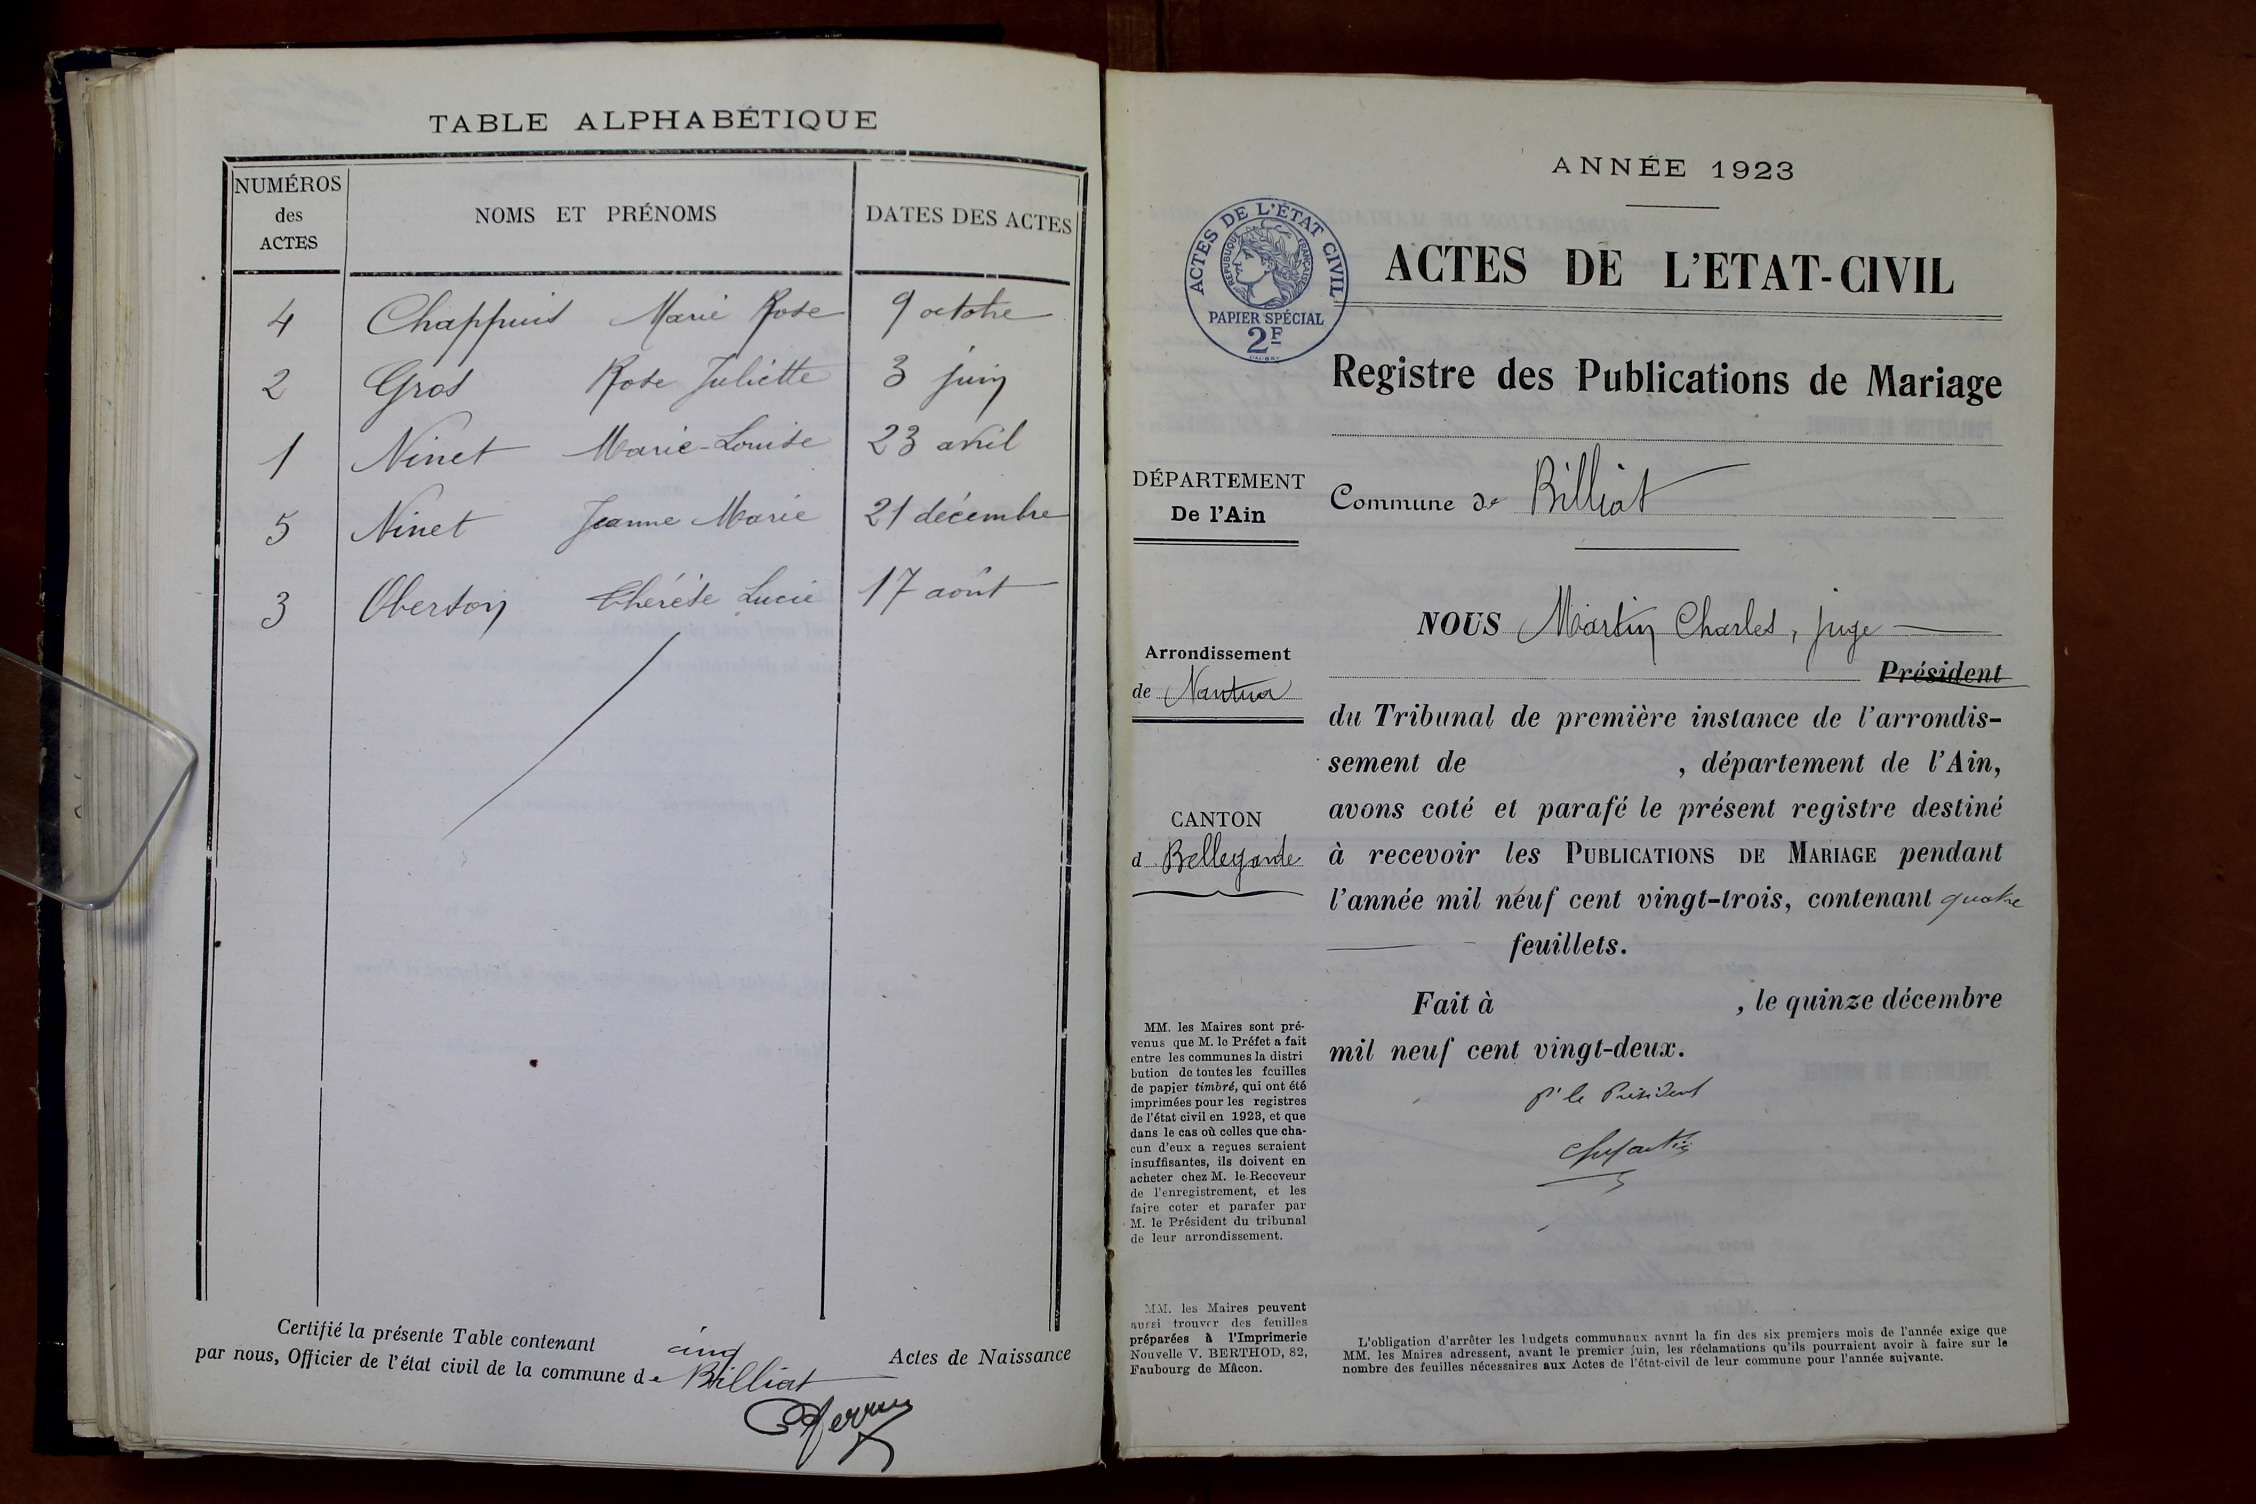 TABLE ALPHABÉTIQUE
NUMÉROS des ACTES
NOMS ET PRÉNOMS
DATES DES ACTES
4 Chappuis Marie Rose 9 octobre
2 Gros Rose Juliette 3 juin
1 Ninet Marie-Louise 23 avril
5 Ninet Jeanne Marie 21 décembre
3 Oberson Thérèse Lucie 17 août
Certifié la présente Table contenant cinq Actes de Naissance
par nous, Officier de l'état civil de la commune de Billiat
ANNÉE 1923
ACTES DE L'ÉTAT CIVIL
RÉPUBLIQUE FRANÇAISE
PAPIER SPÉCIAL
2F
ACTES DE L'ETAT-CIVIL
Registre des Publications de Mariage
DÉPARTEMENT
De l'Ain
Commune de Billiat
Arrondissement
de Nantua
CANTON
d Bellegarde
NOUS Martin Charles, juge
Président
du Tribunal de première instance de l'arrondis-
sement de , département de l'Ain,
avons coté et parafé le présent registre destiné
à recevoir les PUBLICATIONS DE MARIAGE pendant
l'année mil neuf cent vingt-trois, contenant quatre
feuillets.
Fait à , le quinze décembre
mil neuf cent vingt-deux.
pr le Président
MM. les Maires sont pré-
venus que M. le Préfet a fait
entre les communes la distri
bution de toutes les feuilles
de papier timbré, qui ont été
imprimées pour les registres
de l'état civil en 1923, et que
dans le cas où celles que cha-
cun d'eux a reçues seraient
insuffisantes, ils doivent en
acheter chez M. le Receveur
de l'enregistrement, et les
faire coter et parafer par
M. le Président du tribunal
de leur arrondissement.
MM. les Maires peuvent
aussi trouver des feuilles
préparées à l'Imprimerie
Nouvelle V. BERTHOD, 82,
Faubourg de Mâcon.
L'obligation d'arrêter les budgets communaux avant la fin des six premiers mois de l'année exige que
MM. les Maires adressent, avant le premier juin, les réclamations qu'ils pourraient avoir à faire sur le
nombre des feuilles nécessaires aux Actes de l'état-civil de leur commune pour l'année suivante.